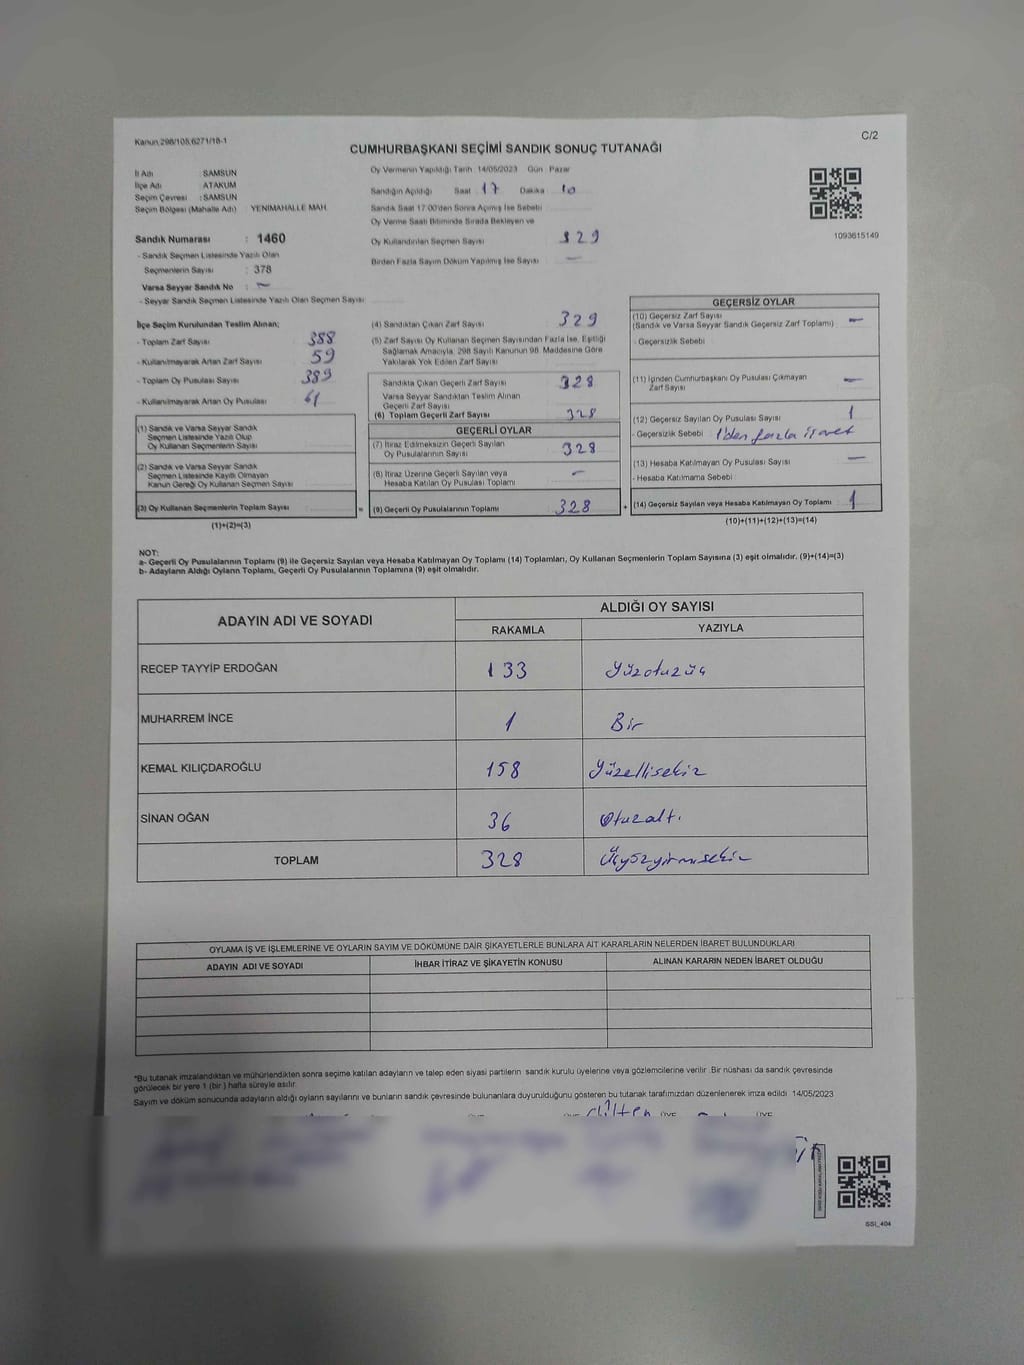 Kanun.298/105,6271/18-1
C/2
CUMHURBAŞKANI SEÇİMİ SANDIK SONUÇ TUTANAĞI
İl Adı : SAMSUN
İlçe Adı ATAKUM
Seçim Çevresi : SAMSUN
Seçim Bölgesi (Mahalle Adı) YENİMAHALLE MAH.
Sandık Numarası : 1460
- Sandık Seçmen Listesinde Yazılı Olan
Seçmenlerin Sayısı : 378
Varsa Seyyar Sandık No : -
- Seyyar Sandık Seçmen Listesinde Yazılı Olan Seçmen Sayısı
Oy Vermenin Yapıldığı Tarih 14/05/2023 Gün Pazar
Sandığın Açıldığı Saat 17 Dakika 10
Sandık Saat 17.00'den Sonra Açılmış İse Sebebi
Oy Verme Saati Bitiminde Sırada Bekleyen ve
Oy Kullandırılan Seçmen Sayısı 329
Birden Fazla Sayım Döküm Yapılmış İse Sayısı -
1093615149
İlçe Seçim Kurulundan Teslim Alınan;
- Toplam Zarf Sayısı 388
- Kullanılmayarak Artan Zarf Sayısı 59
- Toplam Oy Pusulası Sayısı 389
- Kullanılmayarak Artan Oy Pusulası 61
(1) Sandık ve Varsa Seyyar Sandık
Seçmen Listesinde Yazılı Olup
Oy Kullanan Seçmenlerin Sayısı
(2) Sandık ve Varsa Seyyar Sandık
Seçmen Listesinde Kayıtlı Olmayan
Kanun Gereği Oy Kullanan Seçmen Sayısı
(3) Oy Kullanan Seçmenlerin Toplam Sayısı
(1)+(2)=(3)
=
(4) Sandıktan Çıkan Zarf Sayısı 329
(5) Zarf Sayısı Oy Kullanan Seçmen Sayısından Fazla İse, Eşitliği
Sağlamak Amacıyla, 298 Sayılı Kanunun 98. Maddesine Göre
Yakılarak Yok Edilen Zarf Sayısı
Sandıkta Çıkan Geçerli Zarf Sayısı 328
Varsa Seyyar Sandıktan Teslim Alınan
Geçerli Zarf Sayısı
(6) Toplam Geçerli Zarf Sayısı 328
GEÇERLİ OYLAR
(7) İtiraz Edilmeksizin Geçerli Sayılan
Oy Pusulalarının Sayısı 328
(8) İtiraz Üzerine Geçerli Sayılan veya
Hesaba Katılan Oy Pusulası Toplamı -
(9) Geçerli Oy Pusulalarının Toplamı 328
+
GEÇERSİZ OYLAR
(10) Geçersiz Zarf Sayısı -
(Sandık ve Varsa Seyyar Sandık Geçersiz Zarf Toplamı)
- Geçersizlik Sebebi
(11) İçinden Cumhurbaşkanı Oy Pusulası Çıkmayan
Zarf Sayısı -
(12) Geçersiz Sayılan Oy Pusulası Sayısı 1
- Geçersizlik Sebebi 1'den fazla işaret
(13) Hesaba Katılmayan Oy Pusulası Sayısı -
- Hesaba Katılmama Sebebi
(14) Geçersiz Sayılan veya Hesaba Katılmayan Oy Toplamı 1
(10)+(11)+(12)+(13)=(14)
NOT:
a- Geçerli Oy Pusulalarının Toplamı (9) ile Geçersiz Sayılan veya Hesaba Katılmayan Oy Toplamı (14) Toplamları, Oy Kullanan Seçmenlerin Toplam Sayısına (3) eşit olmalıdır. (9)+(14)=(3)
b- Adayların Aldığı Oyların Toplamı, Geçerli Oy Pusulalarının Toplamına (9) eşit olmalıdır.
ADAYIN ADI VE SOYADI
ALDIĞI OY SAYISI
RAKAMLA YAZIYLA
RECEP TAYYİP ERDOĞAN 133 Yüzotuzüç
MUHARREM İNCE 1 Bir
KEMAL KILIÇDAROĞLU 158 Yüzellisekiz
SİNAN OĞAN 36 Otuzaltı
TOPLAM 328 Üçyüzyirmisekiz
OYLAMA İŞ VE İŞLEMLERİNE VE OYLARIN SAYIM VE DÖKÜMÜNE DAİR ŞİKAYETLERLE BUNLARA AİT KARARLARIN NELERDEN İBARET BULUNDUKLARI
ADAYIN ADI VE SOYADI İHBAR İTİRAZ VE ŞİKAYETİN KONUSU ALINAN KARARIN NEDEN İBARET OLDUĞU
*Bu tutanak imzalandıktan ve mühürlendikten sonra seçime katılan adayların ve talep eden siyasi partilerin sandık kurulu üyelerine veya gözlemcilerine verilir .Bir nüshası da sandık çevresinde
görülecek bir yere 1 (bir ) hafta süreyle asılır.
Sayım ve döküm sonucunda adayların aldığı oyların sayılarını ve bunların sandık çevresinde bulunanlara duyurulduğunu gösteren bu tutanak tarafımızdan düzenlenerek imza edildi 14/05/2023
SSI_404